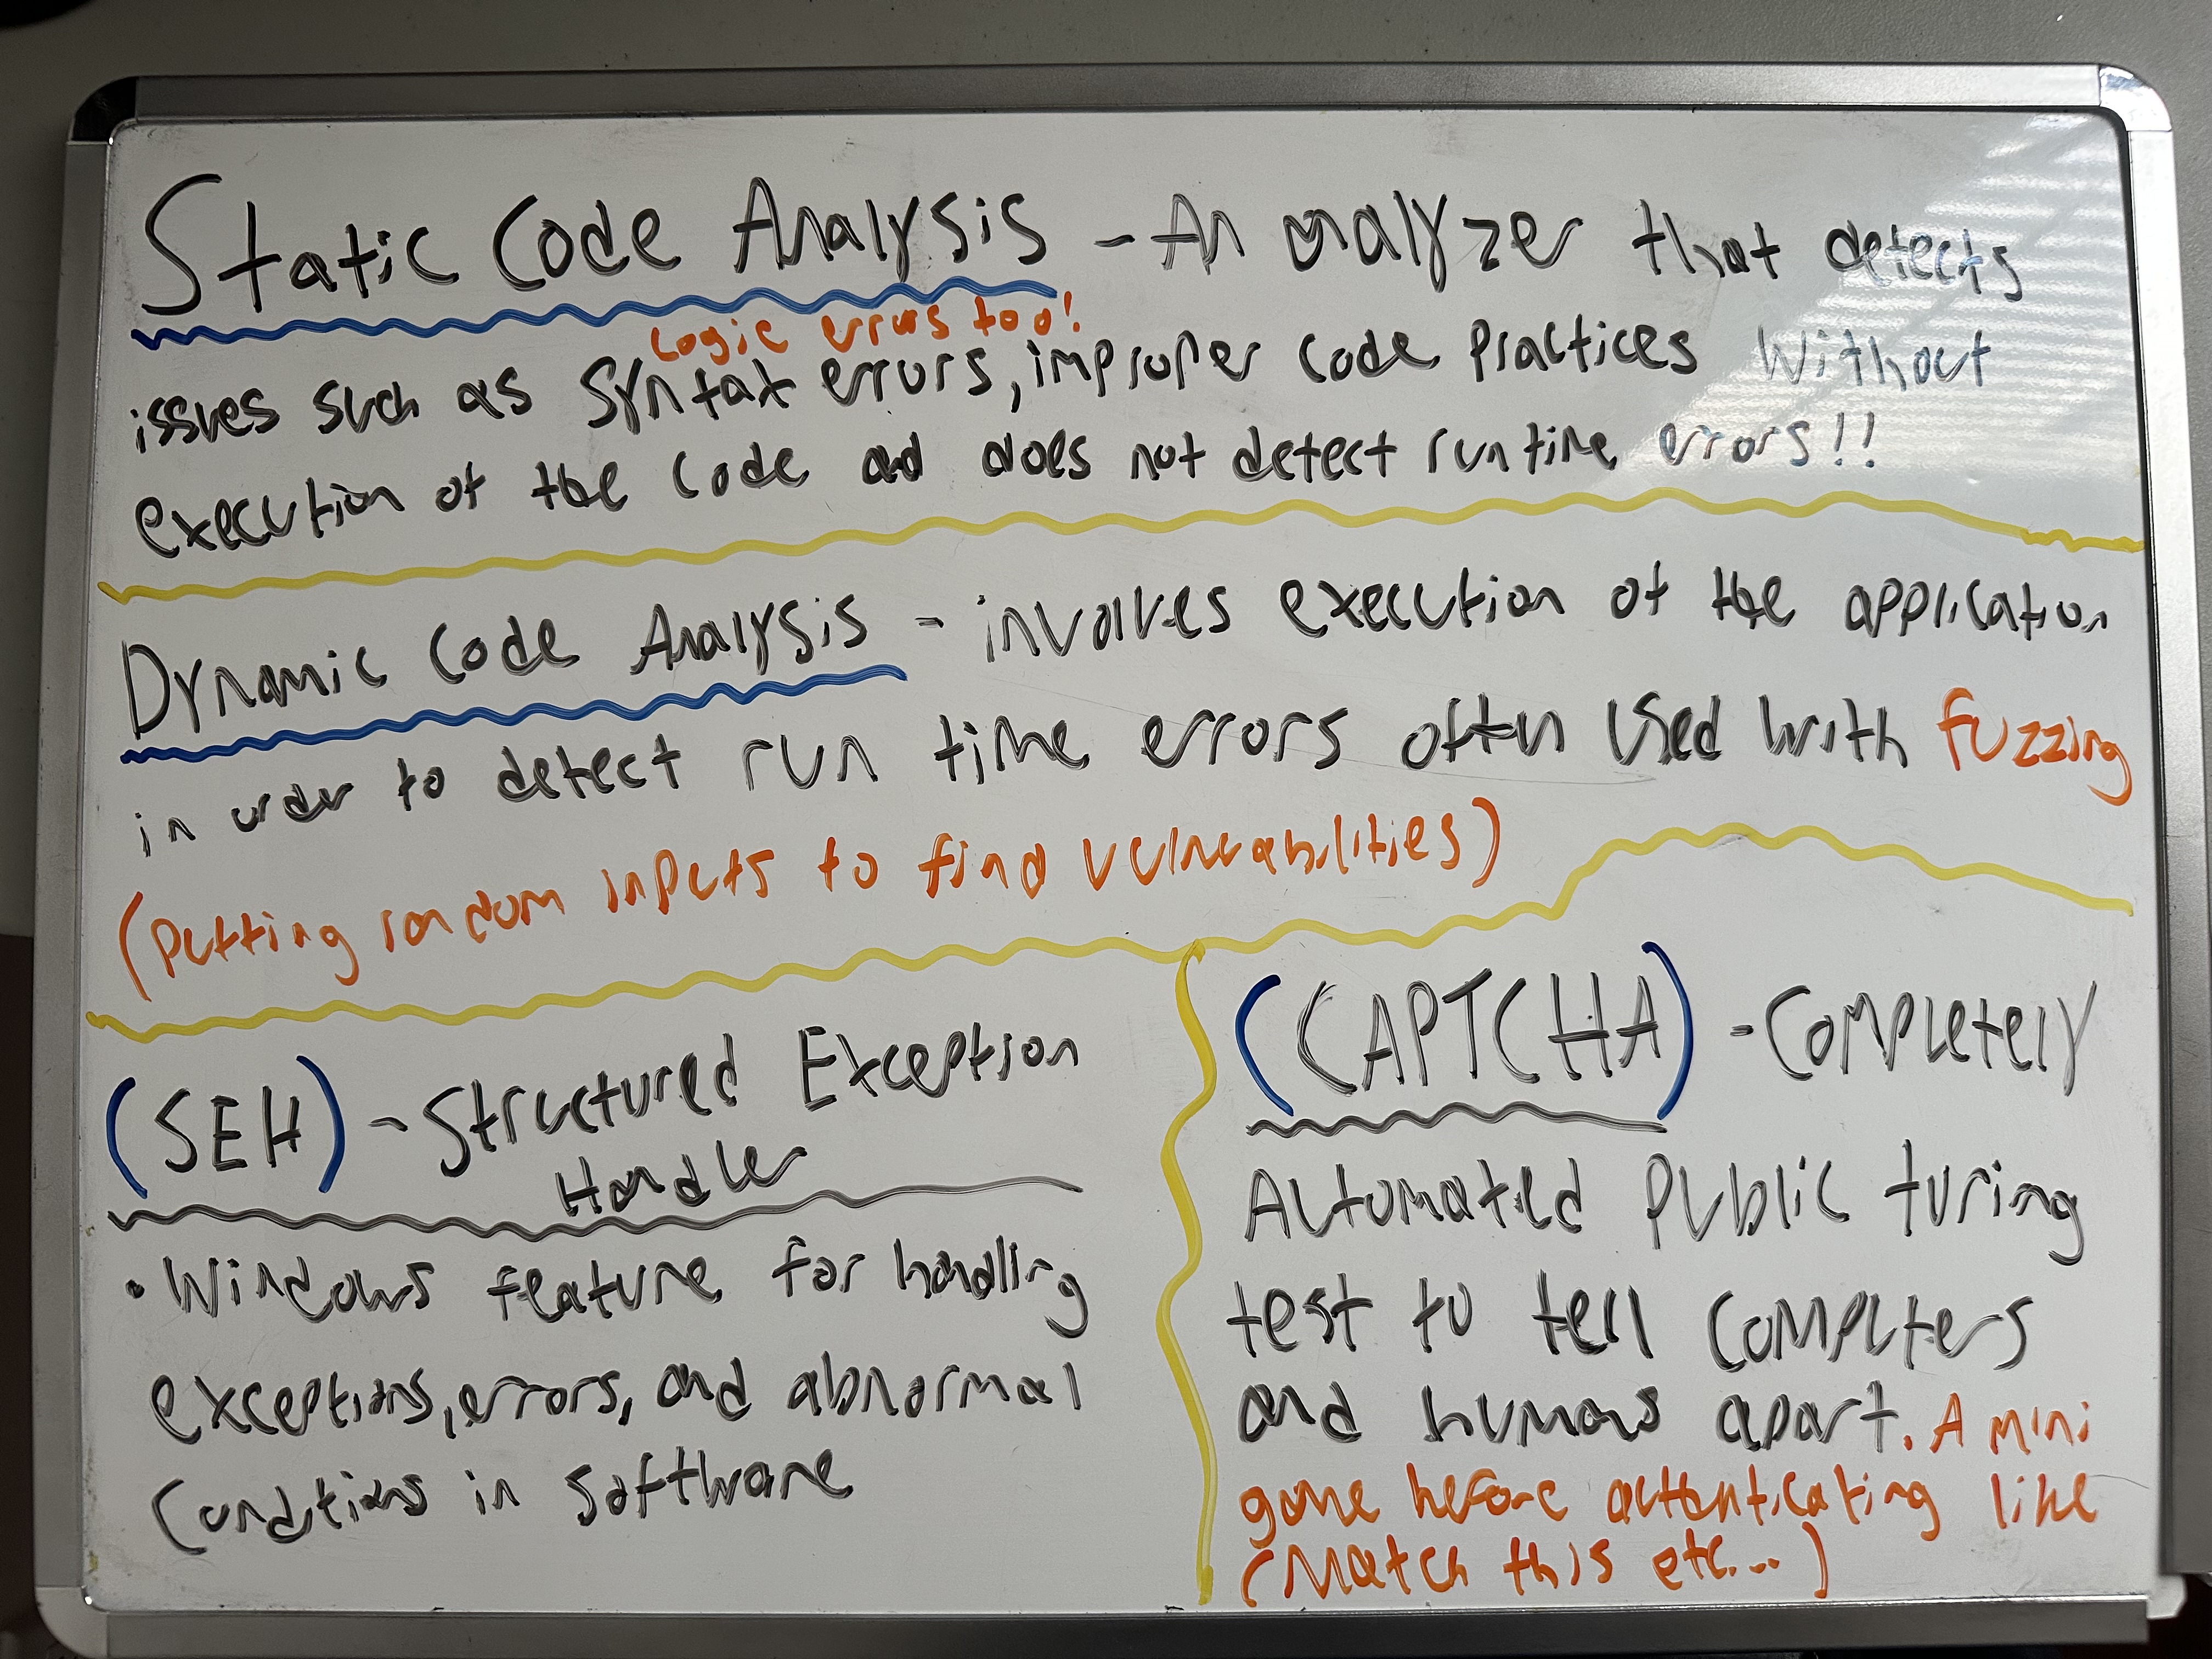 Static Code Analysis - An analyzer that detects
Logic errors too!
issues such as syntax errors, improper code practices without
execution of the code and does not detect runtime errors!!
Dynamic Code Analysis - involves execution of the application
in order to detect run time errors often used with fuzzing
(putting random inputs to find vulnerabilities)
(SEH) - Structured Exception
Handler
• Windows feature for handling
exceptions, errors, and abnormal
conditions in software
(CAPTCHA) - Completely
Automated Public turing
test to tell computers
and humans apart. A mini
game before authenticating like
(Match this etc...)